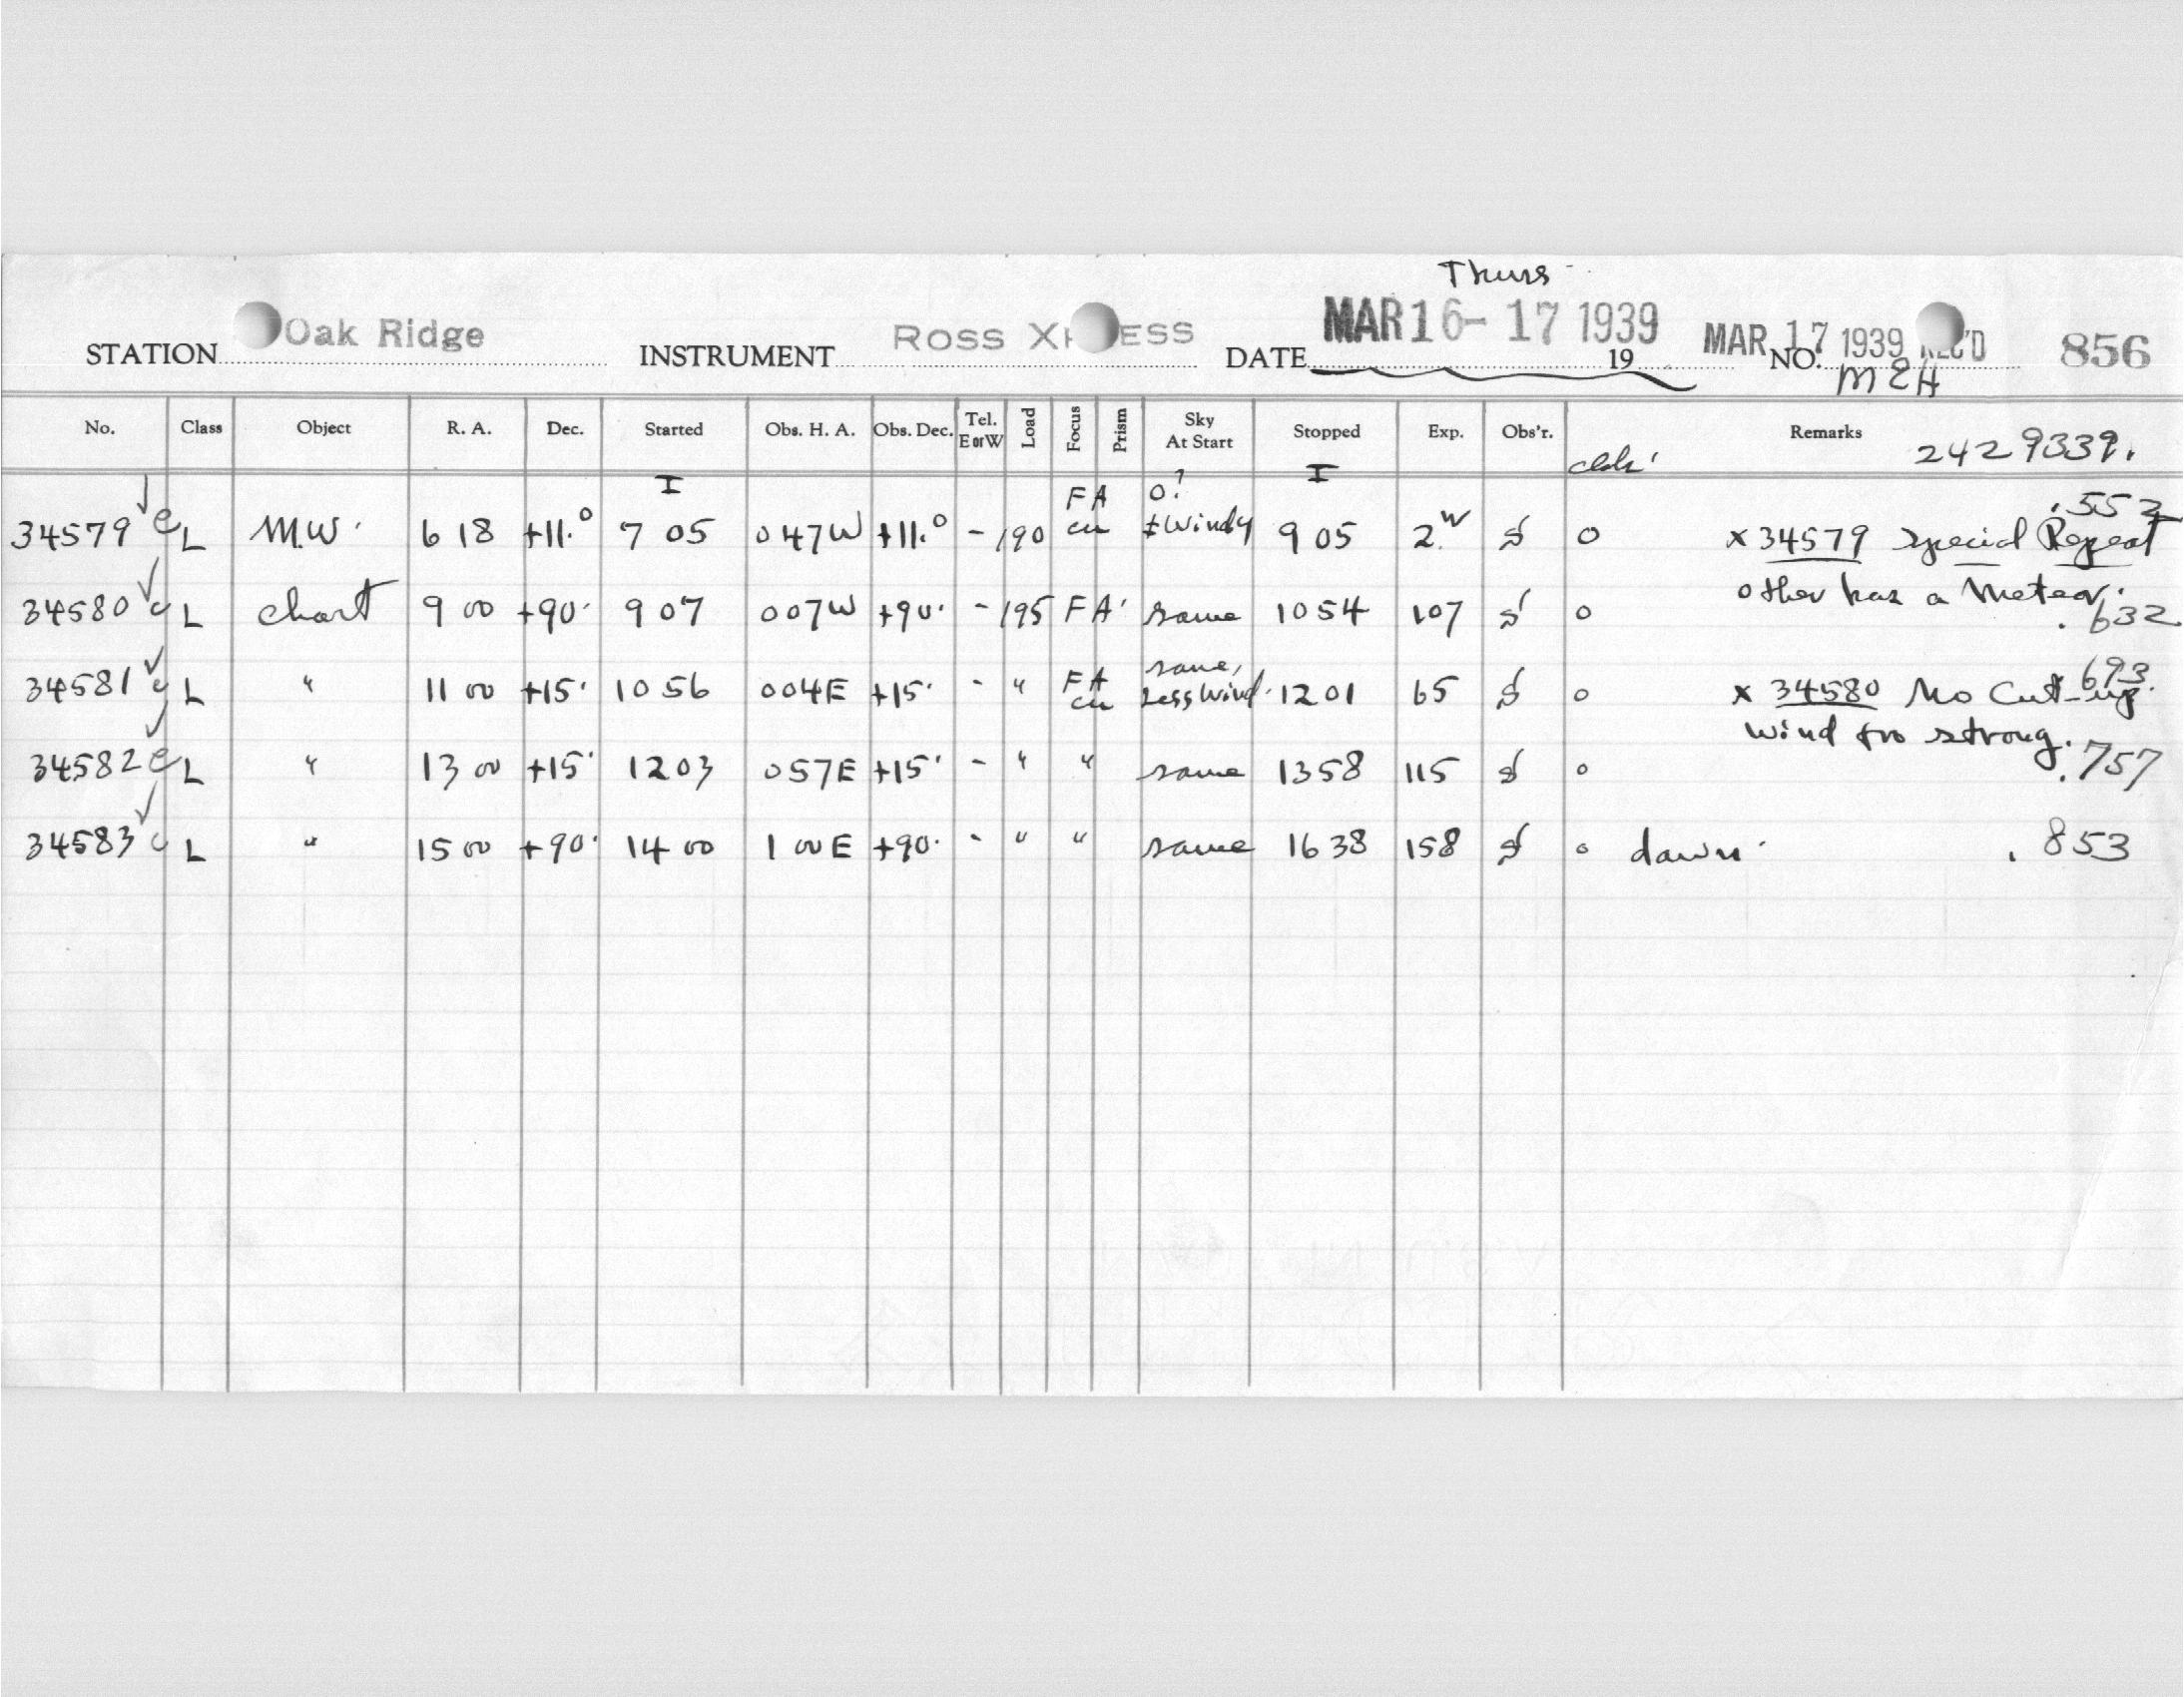 Thurs
STATION Oak Ridge INSTRUMENT ROSS DATE MAR 16-17 1939 19 MAR 17 1939 REC'D NO. 856
MEH
No. Class Object R. A. Dec. Started Obs. H. A. Obs. Dec. Tel. E or W Load Focus Prism Sky At Start Stopped Exp. Obs'r. Remarks 2429339.
I I
34579 L M.W. 6 18 +11.° 7 05 0 47 W +11.° - 190 FA 0? Windy 9 05 2 0 .552
x 34579 special Repeat
other has a Meteor.
34580 L chart 9 00 +90. 9 07 0 07 W +90. - 195 FA same 10 54 107 0 .632
34581 L " 11 00 +15. 10 56 0 04 E +15. - " FA same, Less Wind. 12 01 65 0 .693
x 34580 No Cut-up.
Wind too strong.
34582 L " 13 00 +15. 12 03 0 57 E +15. - " " same 13 58 115 0 .757
34583 L " 15 00 +90. 14 00 1 00 E +90. - " " same 16 38 158 0 dawn. .853